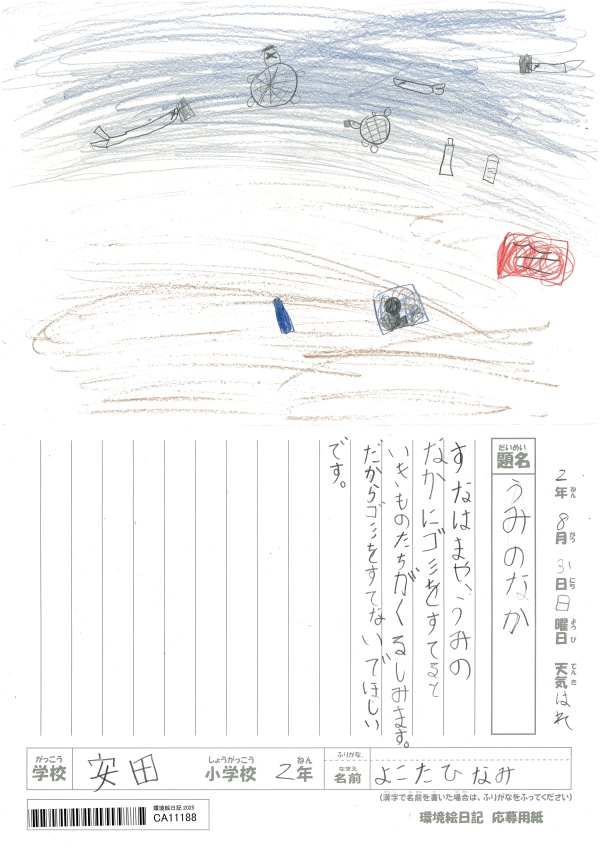 2年 8月 31日 日曜日 天気 はれ
ねん がつ にち ようび てんき
題名 うみのなか
だいめい
すなはまや、うみの
なかにゴミをすてると
いきものたちがくるしみます。
だからゴミをすてないでほしい
です。
がっこう しょうがっこう ねん
学校 安田 小学校 2年
ふりがな
なまえ
名前 よこたひなみ
(漢字で名前を書いた場合は、ふりがなをふってください)
環境絵日記 応募用紙
環境絵日記 2025
CA11188